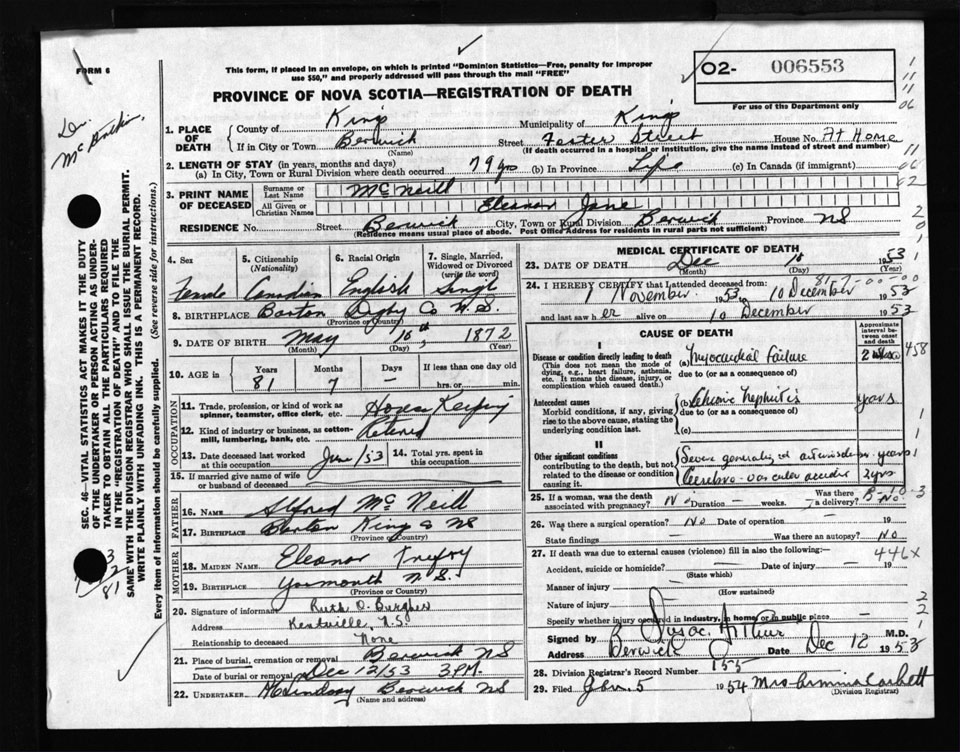 FORM 6
This form, if placed in an envelope, on which is printed "Dominion Statistics—Free, penalty for improper
use $50," and properly addressed will pass through the mail "FREE"
PROVINCE OF NOVA SCOTIA—REGISTRATION OF DEATH
O2- 006553
For use of the Department only
1. PLACE OF DEATH
County of King's Municipality of King's
If in City or Town Berwick Street Foster Street House No. At Home
(Name) (If death occurred in a hospital or institution, give the name instead of street and number)
2. LENGTH OF STAY (in years, months and days)
(a) In City, Town or Rural Division where death occurred 79 yrs (b) In Province Life (c) In Canada (if immigrant)
3. PRINT NAME OF DECEASED
Surname or Last Name McNeill
All Given or Christian Names Eleanor Jane
RESIDENCE No. Street Berwick City, Town or Rural Division Berwick Province NS
(Residence means usual place of abode. Post Office Address for residents in rural parts not sufficient)
4. Sex Female
5. Citizenship (Nationality) Canadian
6. Racial Origin English
7. Single, Married, Widowed or Divorced (write the word) Single
8. BIRTHPLACE Barton Digby Co N.S.
(Province or Country)
9. DATE OF BIRTH May 10th, 1872
(Month) (Day) (Year)
10. AGE in Years 81 Months 7 Days — If less than one day old
hrs. or min.
OCCUPATION
11. Trade, profession, or kind of work as spinner, teamster, office clerk, etc. House Keeping
12. Kind of industry or business, as cotton-mill, lumbering, bank, etc. Retired
13. Date deceased last worked at this occupation June/53 14. Total yrs. spent in this occupation
15. If married give name of wife or husband of deceased
FATHER
16. Name Alfred McNeill
17. Birthplace Barton Kings NS
(Province or Country)
MOTHER
18. MAIDEN NAME Eleanor Trefry
19. BIRTHPLACE Yarmouth N.S.
(Province or Country)
20. Signature of informant Ruth O. Burgher
Address Kentville, N.S.
Relationship to deceased None
21. Place of burial, cremation or removal Berwick NS
Date of burial or removal Dec 12/53 3 P.M.
22. UNDERTAKER Lindsay Berwick NS
(Name and address)
MEDICAL CERTIFICATE OF DEATH
23. DATE OF DEATH Dec 10 1953
(Month) (Day) (Year)
24. I HEREBY CERTIFY that I attended deceased from:
1 November 1953 to 10 December 1953
and last saw her alive on 10 December 1953
CAUSE OF DEATH
Approximate interval between onset and death
I
Disease or condition directly leading to death (a) myocardial failure 2 wks 458
(This does not mean the mode of dying, e.g., heart failure, asthenia, etc. It means the disease, injury, or complication which caused death.)
due to (or as a consequence of)
Antecedent causes (b) Chronic Nephritis years
Morbid conditions, if any, giving rise to the above cause, stating the underlying condition last.
due to (or as a consequence of)
(c)
II
Other significant conditions contributing to the death, but not related to the disease or condition causing it.
Severe generalized arteriosclerosis years
Cerebro-vascular accident 2 yrs
25. If a woman, was the death associated with pregnancy? No Duration — weeks. Was there a delivery? No
26. Was there a surgical operation? No Date of operation — 19
State findings — Was there an autopsy? No
27. If death was due to external causes (violence) fill in also the following:— 446X
Accident, suicide or homicide? — Date of injury — 19
(State which)
Manner of injury —
(How sustained)
Nature of injury —
Specify whether injury occurred in industry, in home or in public place —
Signed by M.D.
Address Berwick Date Dec 12 1953
28. Division Registrar's Record Number 155
29. Filed Jan. 5 1954 Mrs Armina Corbett
(Division Registrar)
SEC. 46—VITAL STATISTICS ACT MAKES IT THE DUTY
OF THE UNDERTAKER OR PERSON ACTING AS UNDER-
TAKER TO OBTAIN ALL THE PARTICULARS REQUIRED
IN THE "REGISTRATION OF DEATH" AND TO FILE THE
SAME WITH THE DIVISION REGISTRAR WHO SHALL ISSUE THE BURIAL PERMIT.
WRITE PLAINLY WITH UNFADING INK. THIS IS A PERMANENT RECORD.
Every item of information should be carefully supplied. (See reverse side for instructions.)